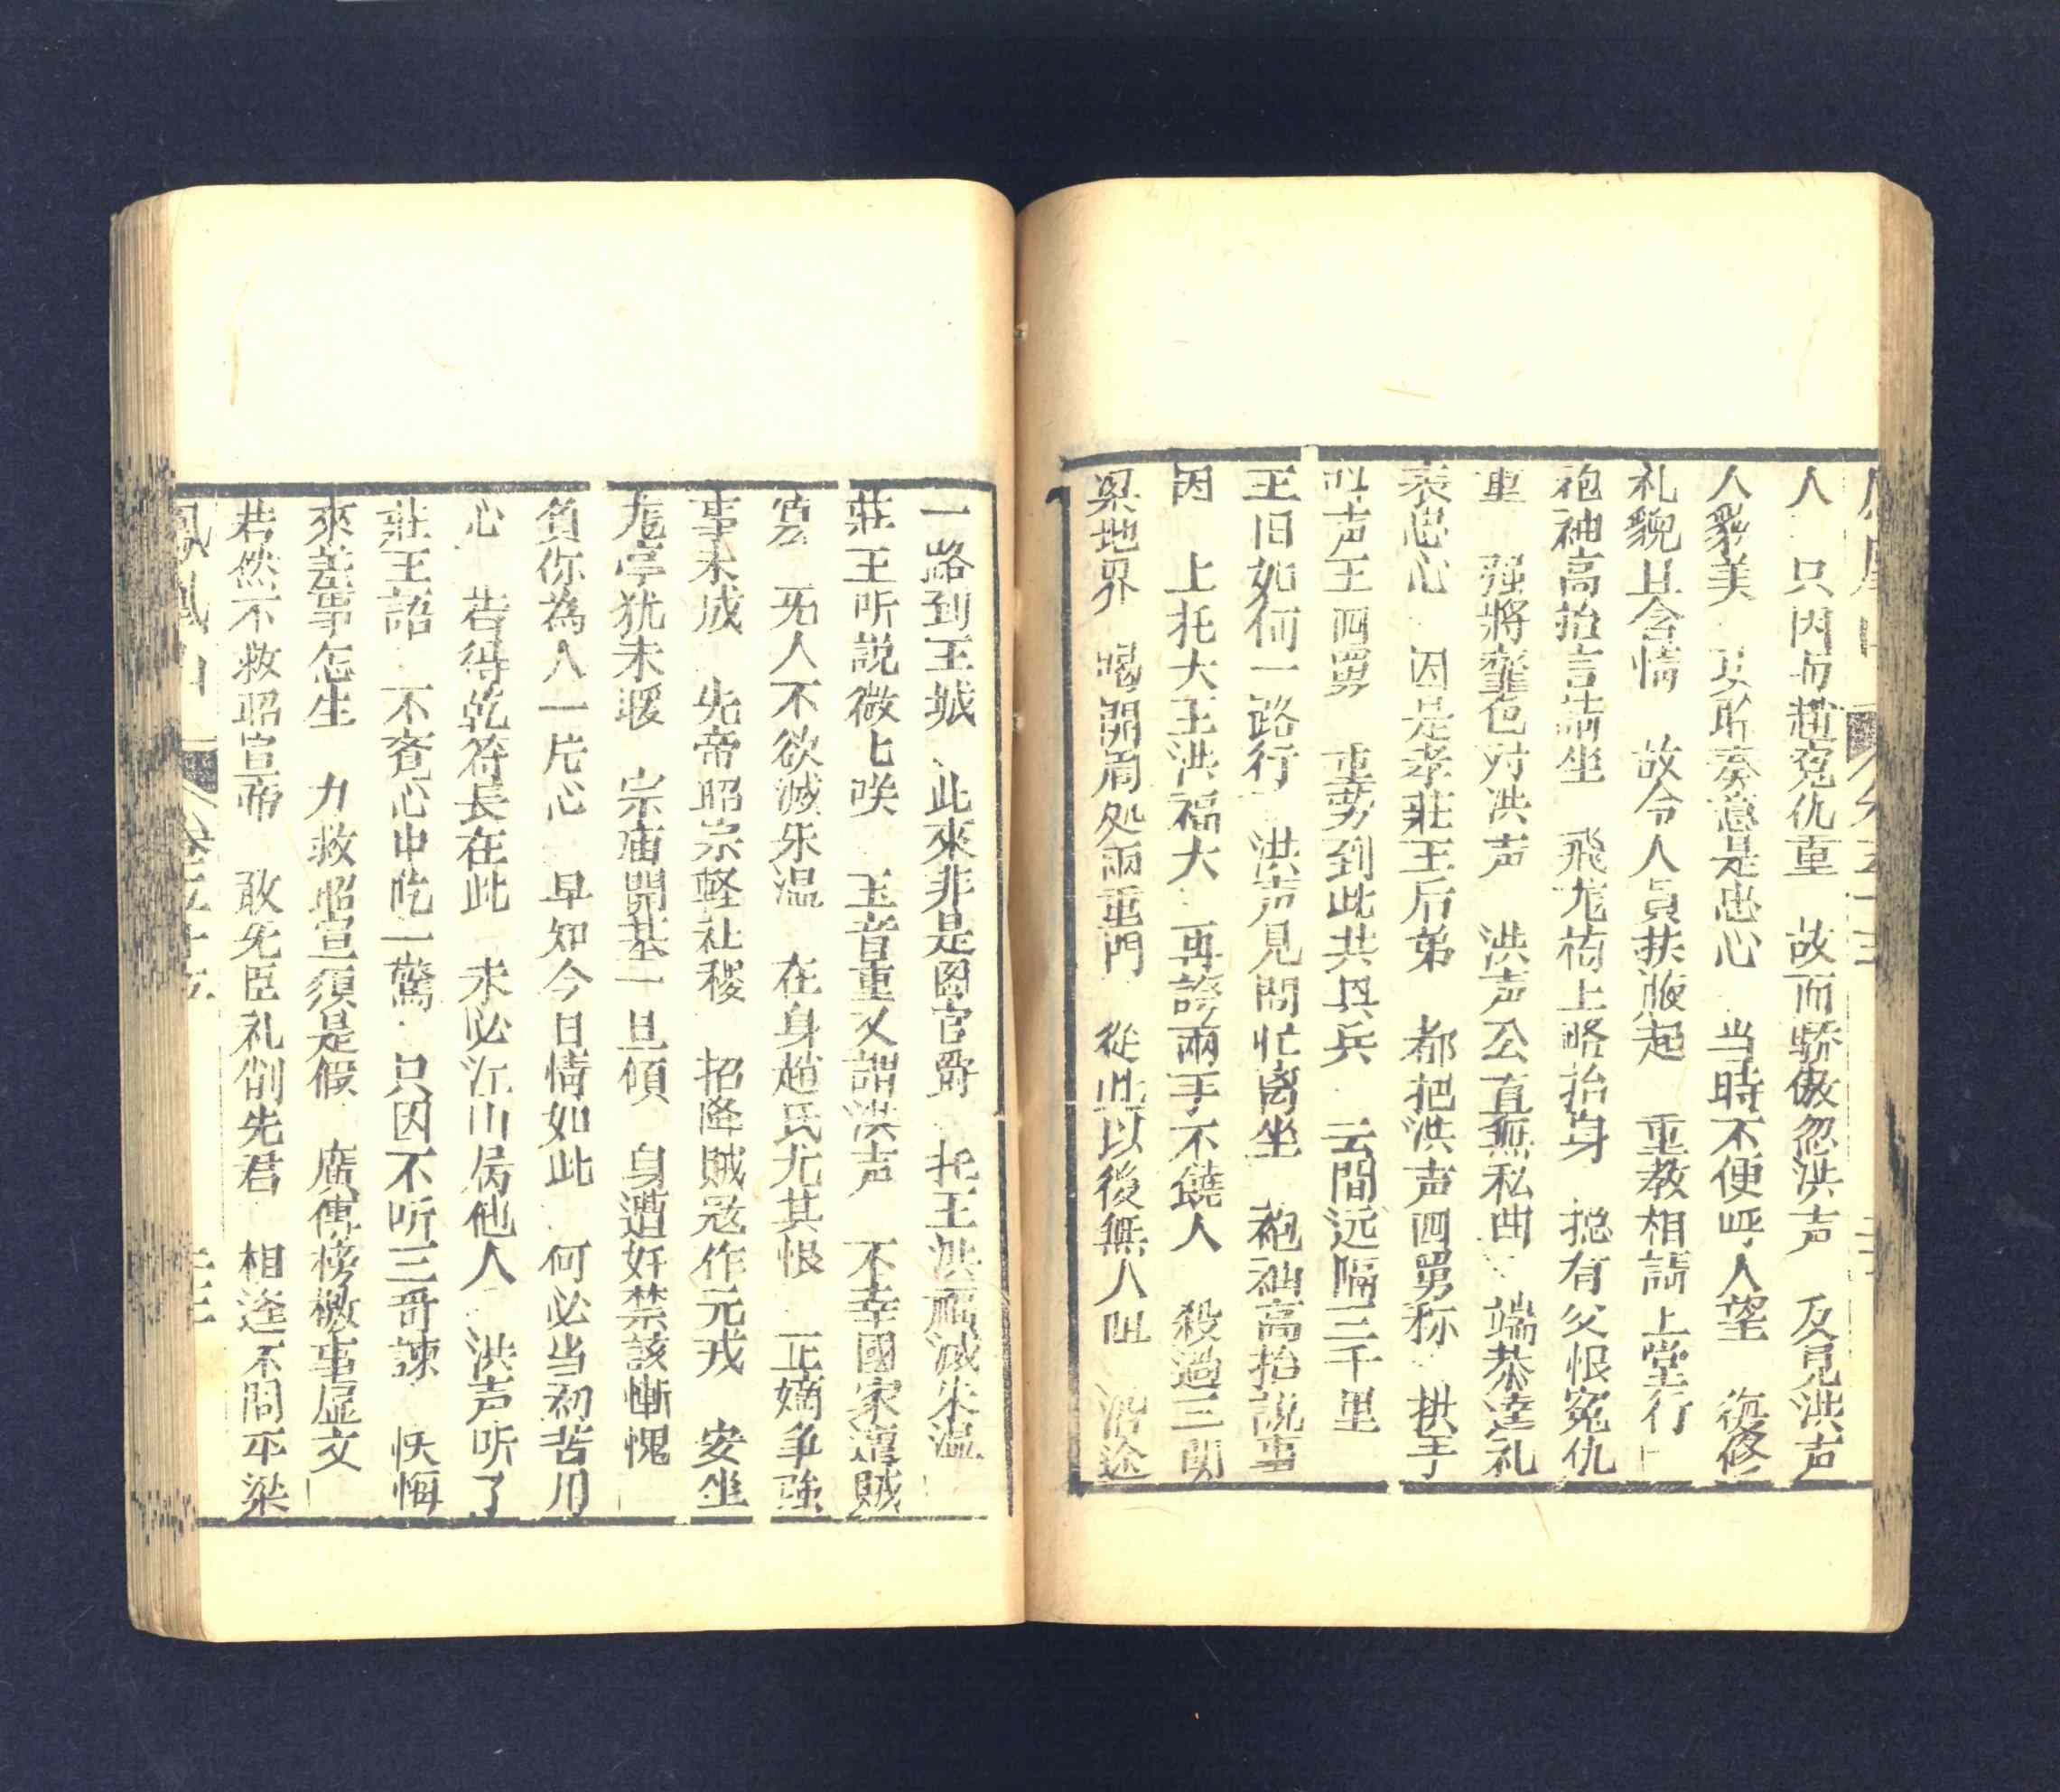 人　只因与趙寃仇重　故而驕傲忽洪声　反見洪声
人貌美　奏意是忠心　当時不便呼人望　復修
礼貌且含情　故令人員扶腋起　重教相請上堂行
袍袖高抬言請坐　飛尨椅上略抬身　抱有父恨寃仇
重　强將龍色対洪声　洪声公直無私曲　端恭逹礼
表忠心　因是孝莊王后弟　都把洪声四舅称　拱手
叫声王四舅　重劳到此共兵　云間远隔三千里
王旧如何一路行　洪声見問忙离坐　袍袖高抬説事
因　上托大王洪福大　再誇兩手不饒人　殺過三関
梁地界　喝開肩処兩重門　從此以後無人阻　沿途
一路到王城　此來非是因官爵　托王洪福滅朱温
莊王听説微匕咲　玉音重又謂洪声　不幸國家遭賊
寇　旡人不欲滅朱温　在身趙氏尤其恨　正嫡争強
事未成　先帝昭宗軽社稷　招降賊冦作元戎　安坐
尨亭犹未暖　宗庙開基一旦傾　身遭奸禁該慚愧
負你為人一片心　早知今日情如此　何必当初苦用
心　若得乾符長在此　未必江山属他人　洪声听了
莊王語　不覚心中吃一驚　只因不听三哥諫　恢悔
來差事怎生　力救昭宣須是假　廣傳榜檄事虚文
若然不救昭宣帝　敢旡臣礼創先君　相逢不問平梁
鳳凰山　卷五十五　二十三